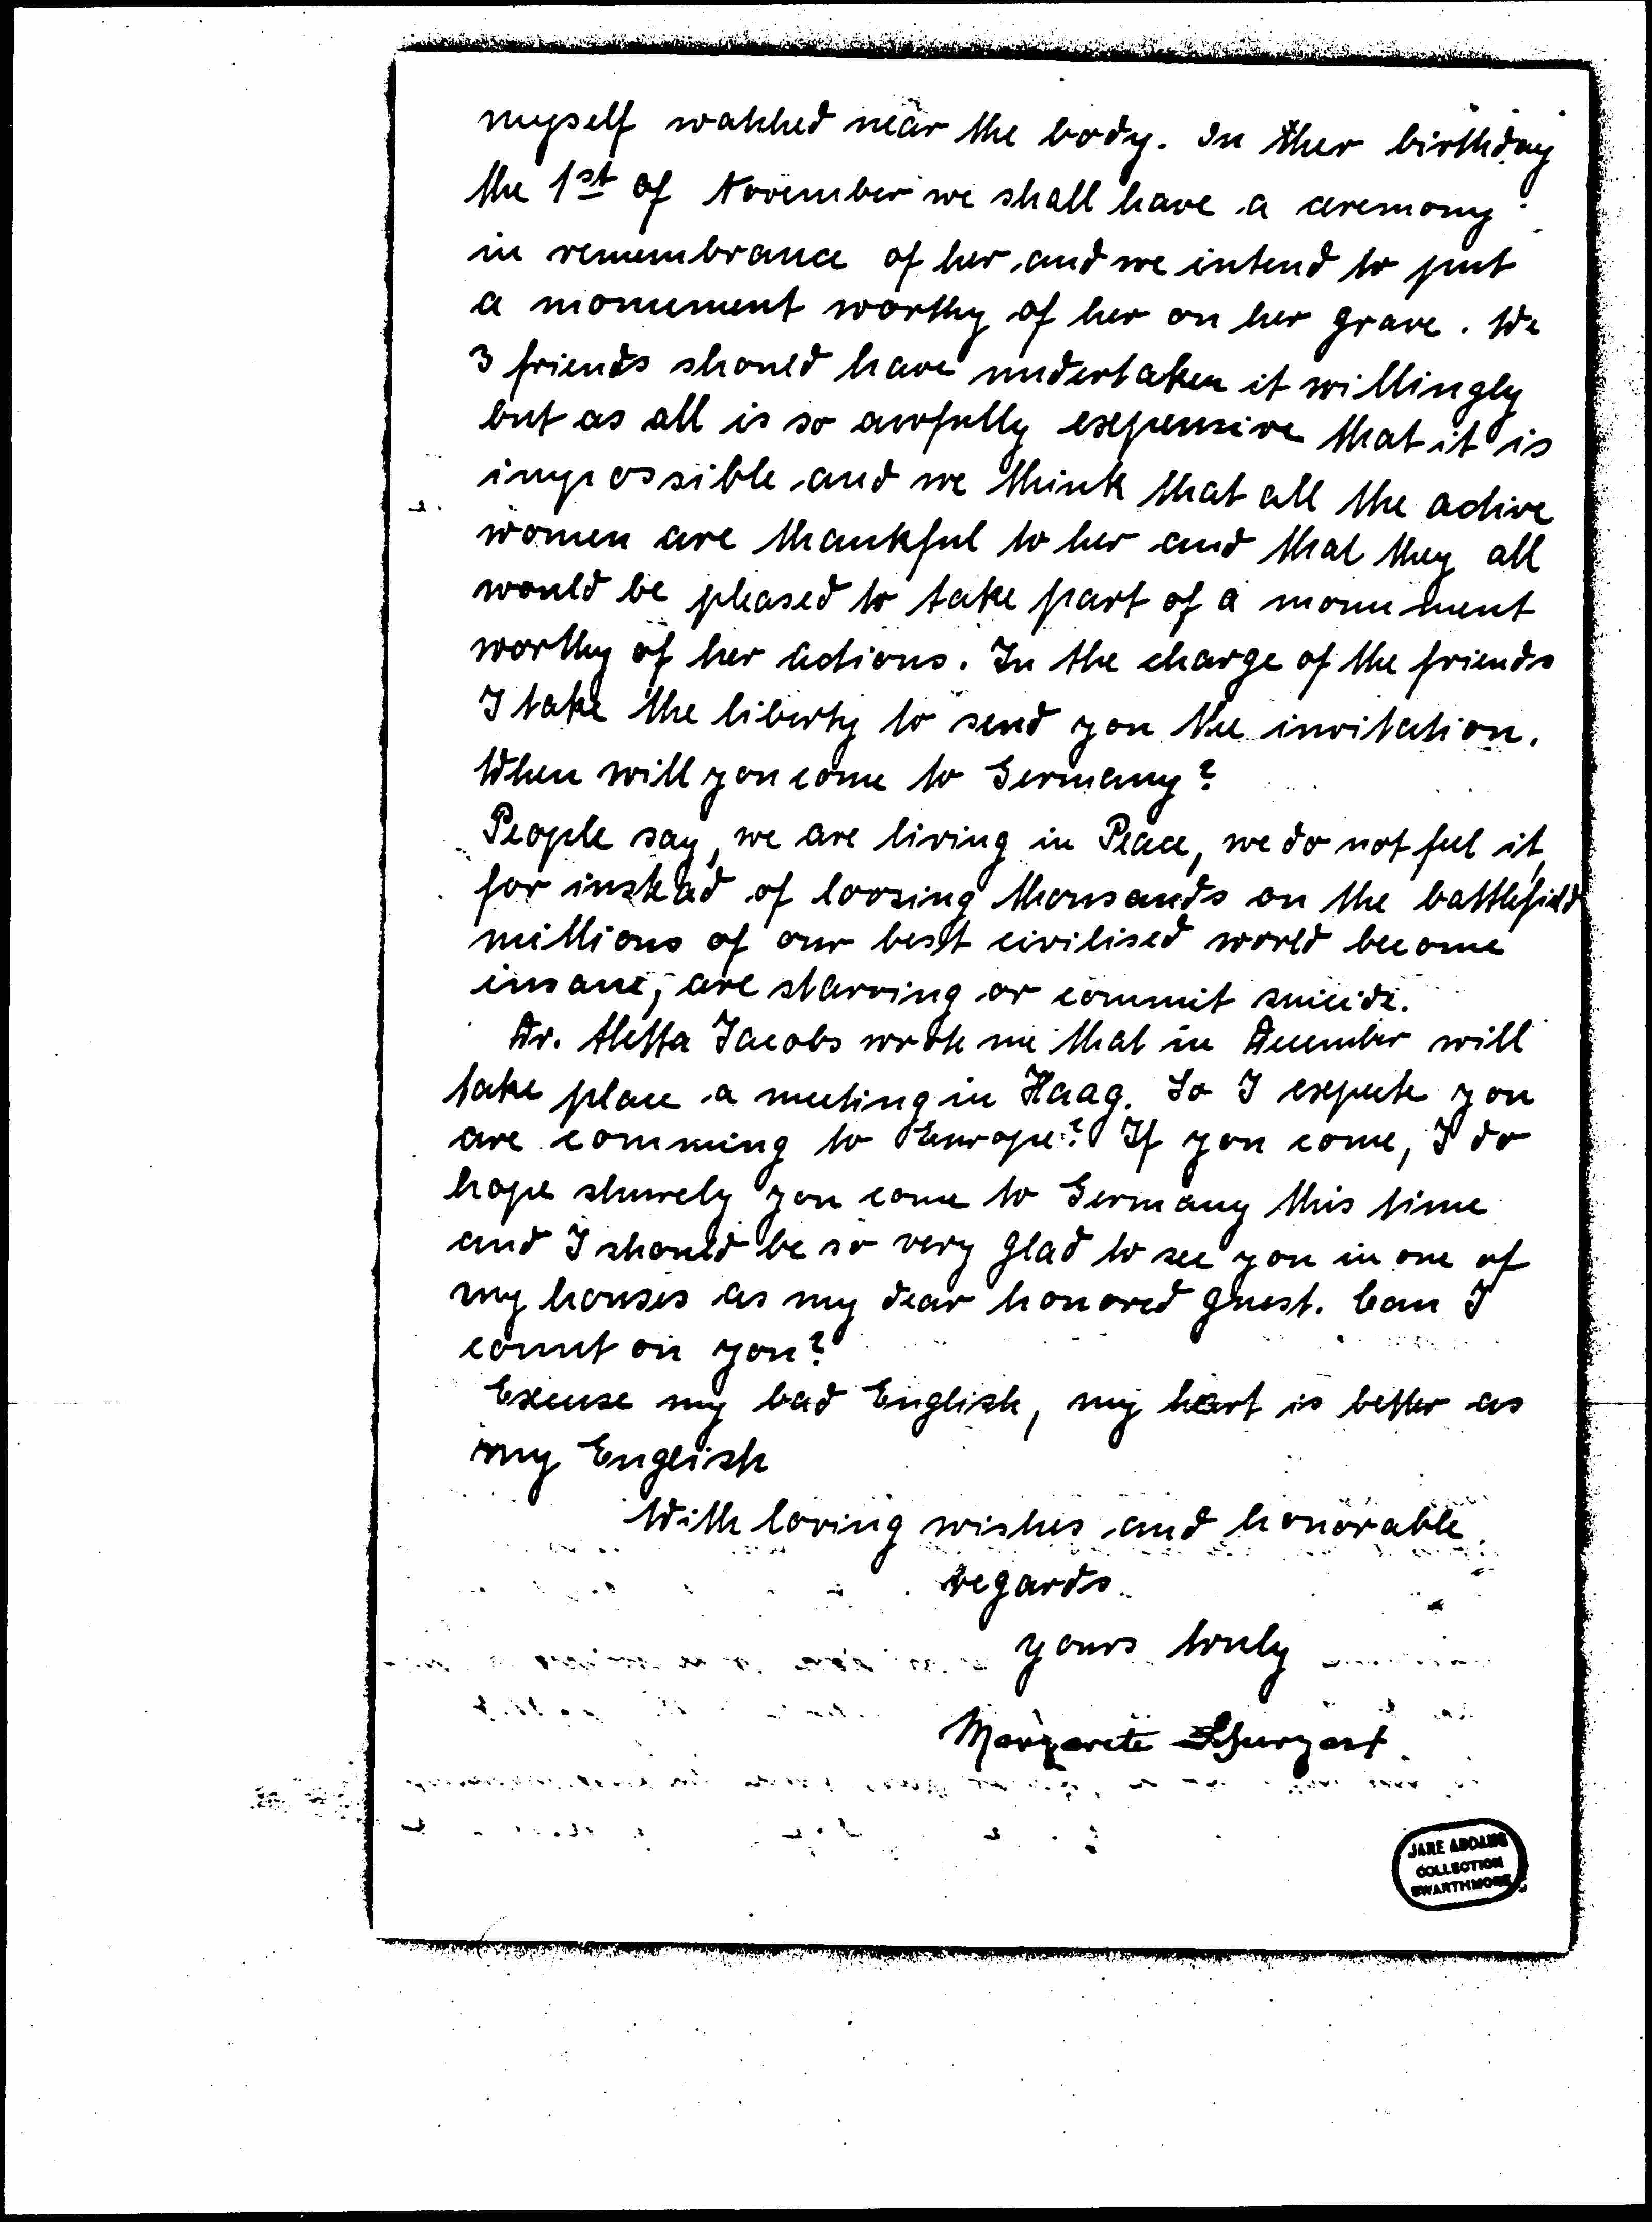 myself watched near the body. In ther birthday
the 1st of November we shall have a ceremony
in remembrance of her, and we intend to put
a monument worthy of her on her grave. We
3 friends should have undertaken it willingly
but as all is so awfully exepensive that it is
impossible and we think that all the active
women are thankful to her and that they all
would be pleased to take part of a monument
worthy of her actions. In the charge of the friends
I take the liberty to send you the invitation.
When will you come to Germany?
People say, we are living in Peace, we do not feel it,
for instead of loosing thousands on the battlefield
millions of our best civilised world become
insane, are starving or commit suicide.
Dr. Aletta Jacobs wrote me that in December will
take place a meeting in Haag. So I expecte you
are comming to Europe? If you come, I do
hope shurely you come to Germany this time
and I should be so very glad to see you in one of
my houses as my dear honored guest. Can I
count on you?
Excuse my bad English, my heart is better as
my English
With loving wishes and honorable
regards
yours truly
Margarete
JANE ADDAMS
COLLECTION
SWARTHMORE